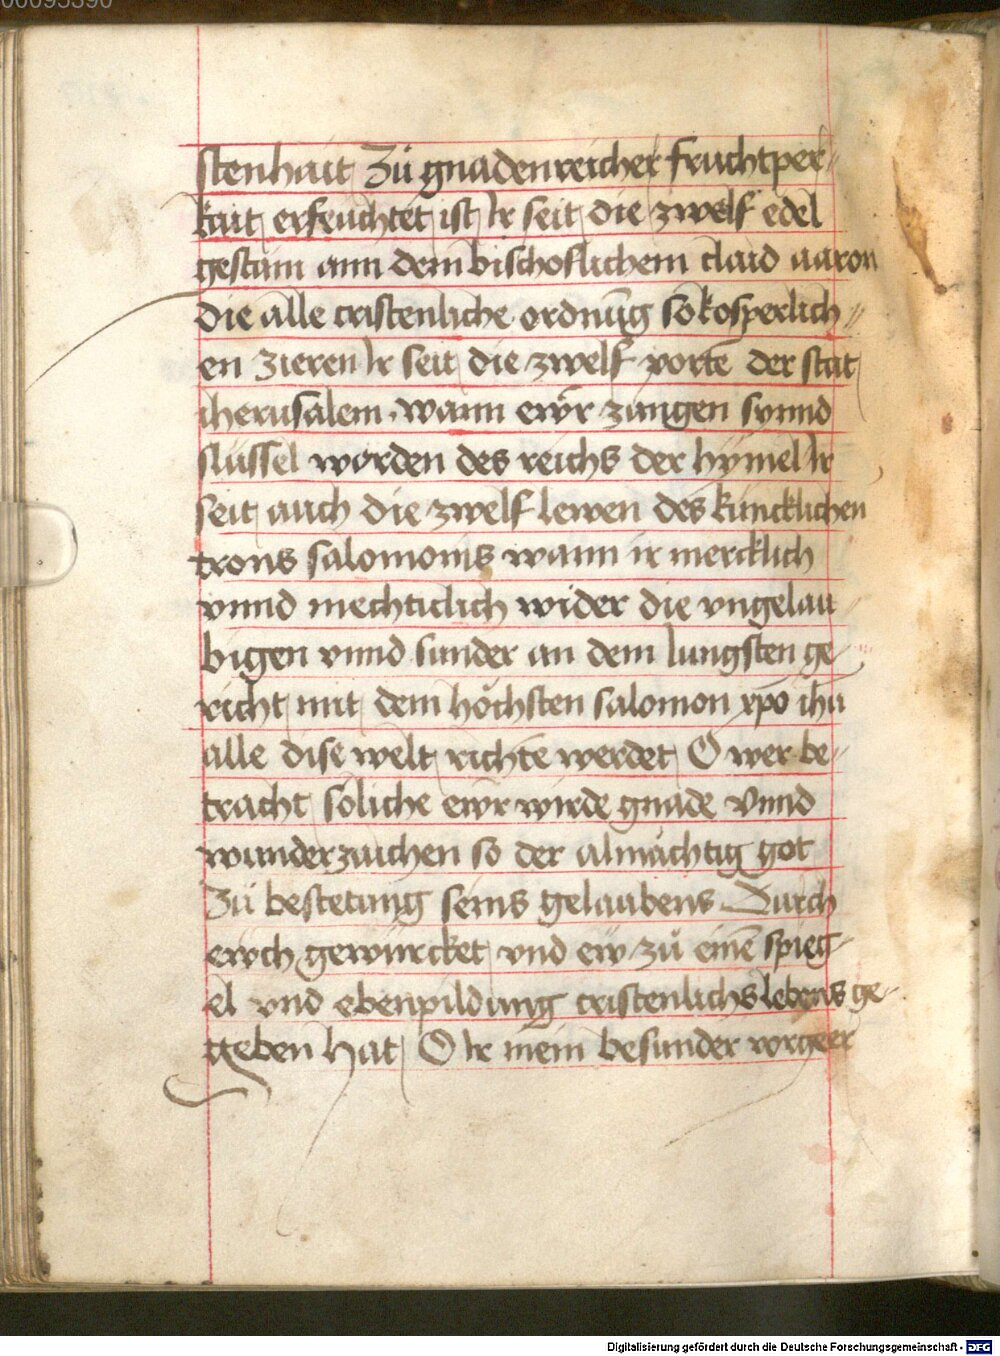 00095390
stenhait Zů gnadenreicher fruchtper⸗
kait erfeuchtet ist Ir seit die zwelf edel
gestain ann dem bischoflichem claid aaron
die alle cristenliche ordnūg so kosperlich⸗
en zieren Ir seit die zwelf porte der stat
iherusalem. wann ewr zungen synnd
slussel worden des reichs der hymel Ir
seit auch die zwelf lewen des kuncklichen
trons salomonis wann ir mercklich
vnnd mechticlich wider die vngelau⸗
bigen vnnd sunder an dem Iungsten ge⸗
richt mit dem höchsten salomon xpo ihū
alle dise welt richte werdet O wer be⸗
tracht söliche ewr wirde gnade Vnnd
wunderzaichen so der almächtig got
Zů bestetung seins gelaubens Durch
ewch gewürcket vnd ew zů einē spieg⸗
el vnd ebenpildung cristenlichs lebens ge⸗
geben hat O Ir mein besunder vorgeer
Digitalisierung gefördert durch die Deutsche Forschungsgemeinschaft - DFG